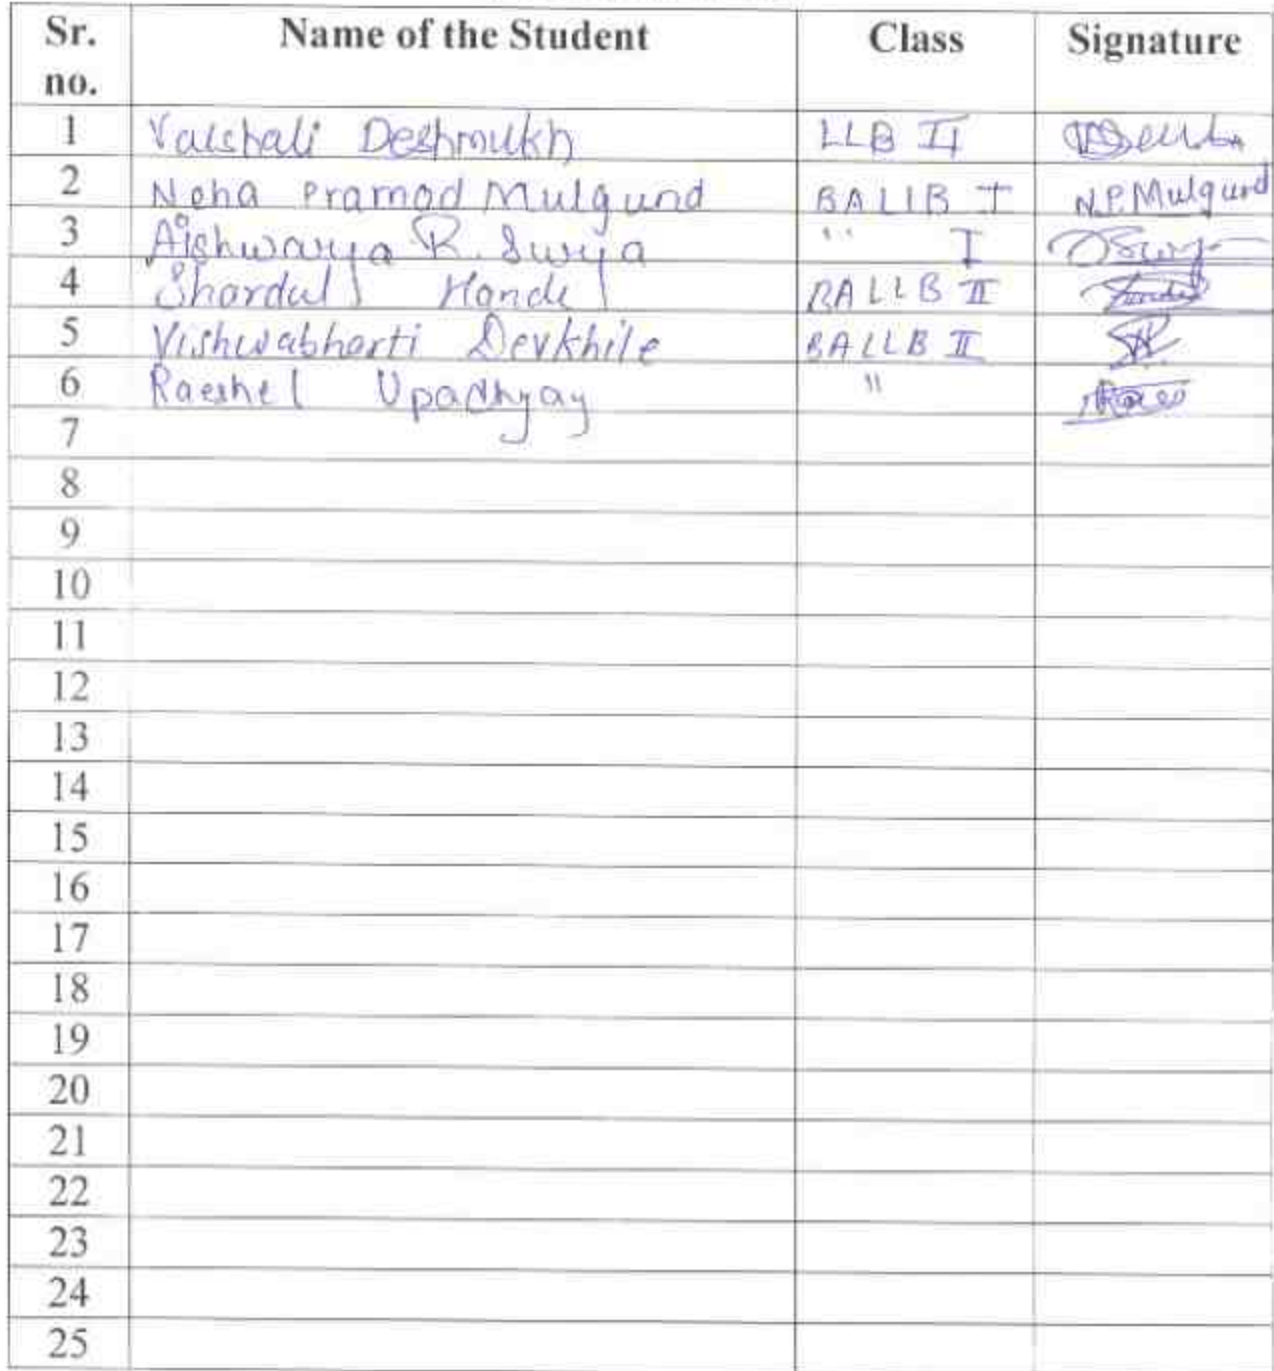 Sr. no. Name of the Student Class Signature
1 Vaishali Deshmukh LLB II
2 Neha Pramod Mulgund BALLB I N.P.Mulgund
3 Aishwarya R. Surya " I
4 Shardul Hande BALLB II
5 Vishwabharti Devkhile BALLB II
6 Raeshel Upadhyay "
7
8
9
10
11
12
13
14
15
16
17
18
19
20
21
22
23
24
25